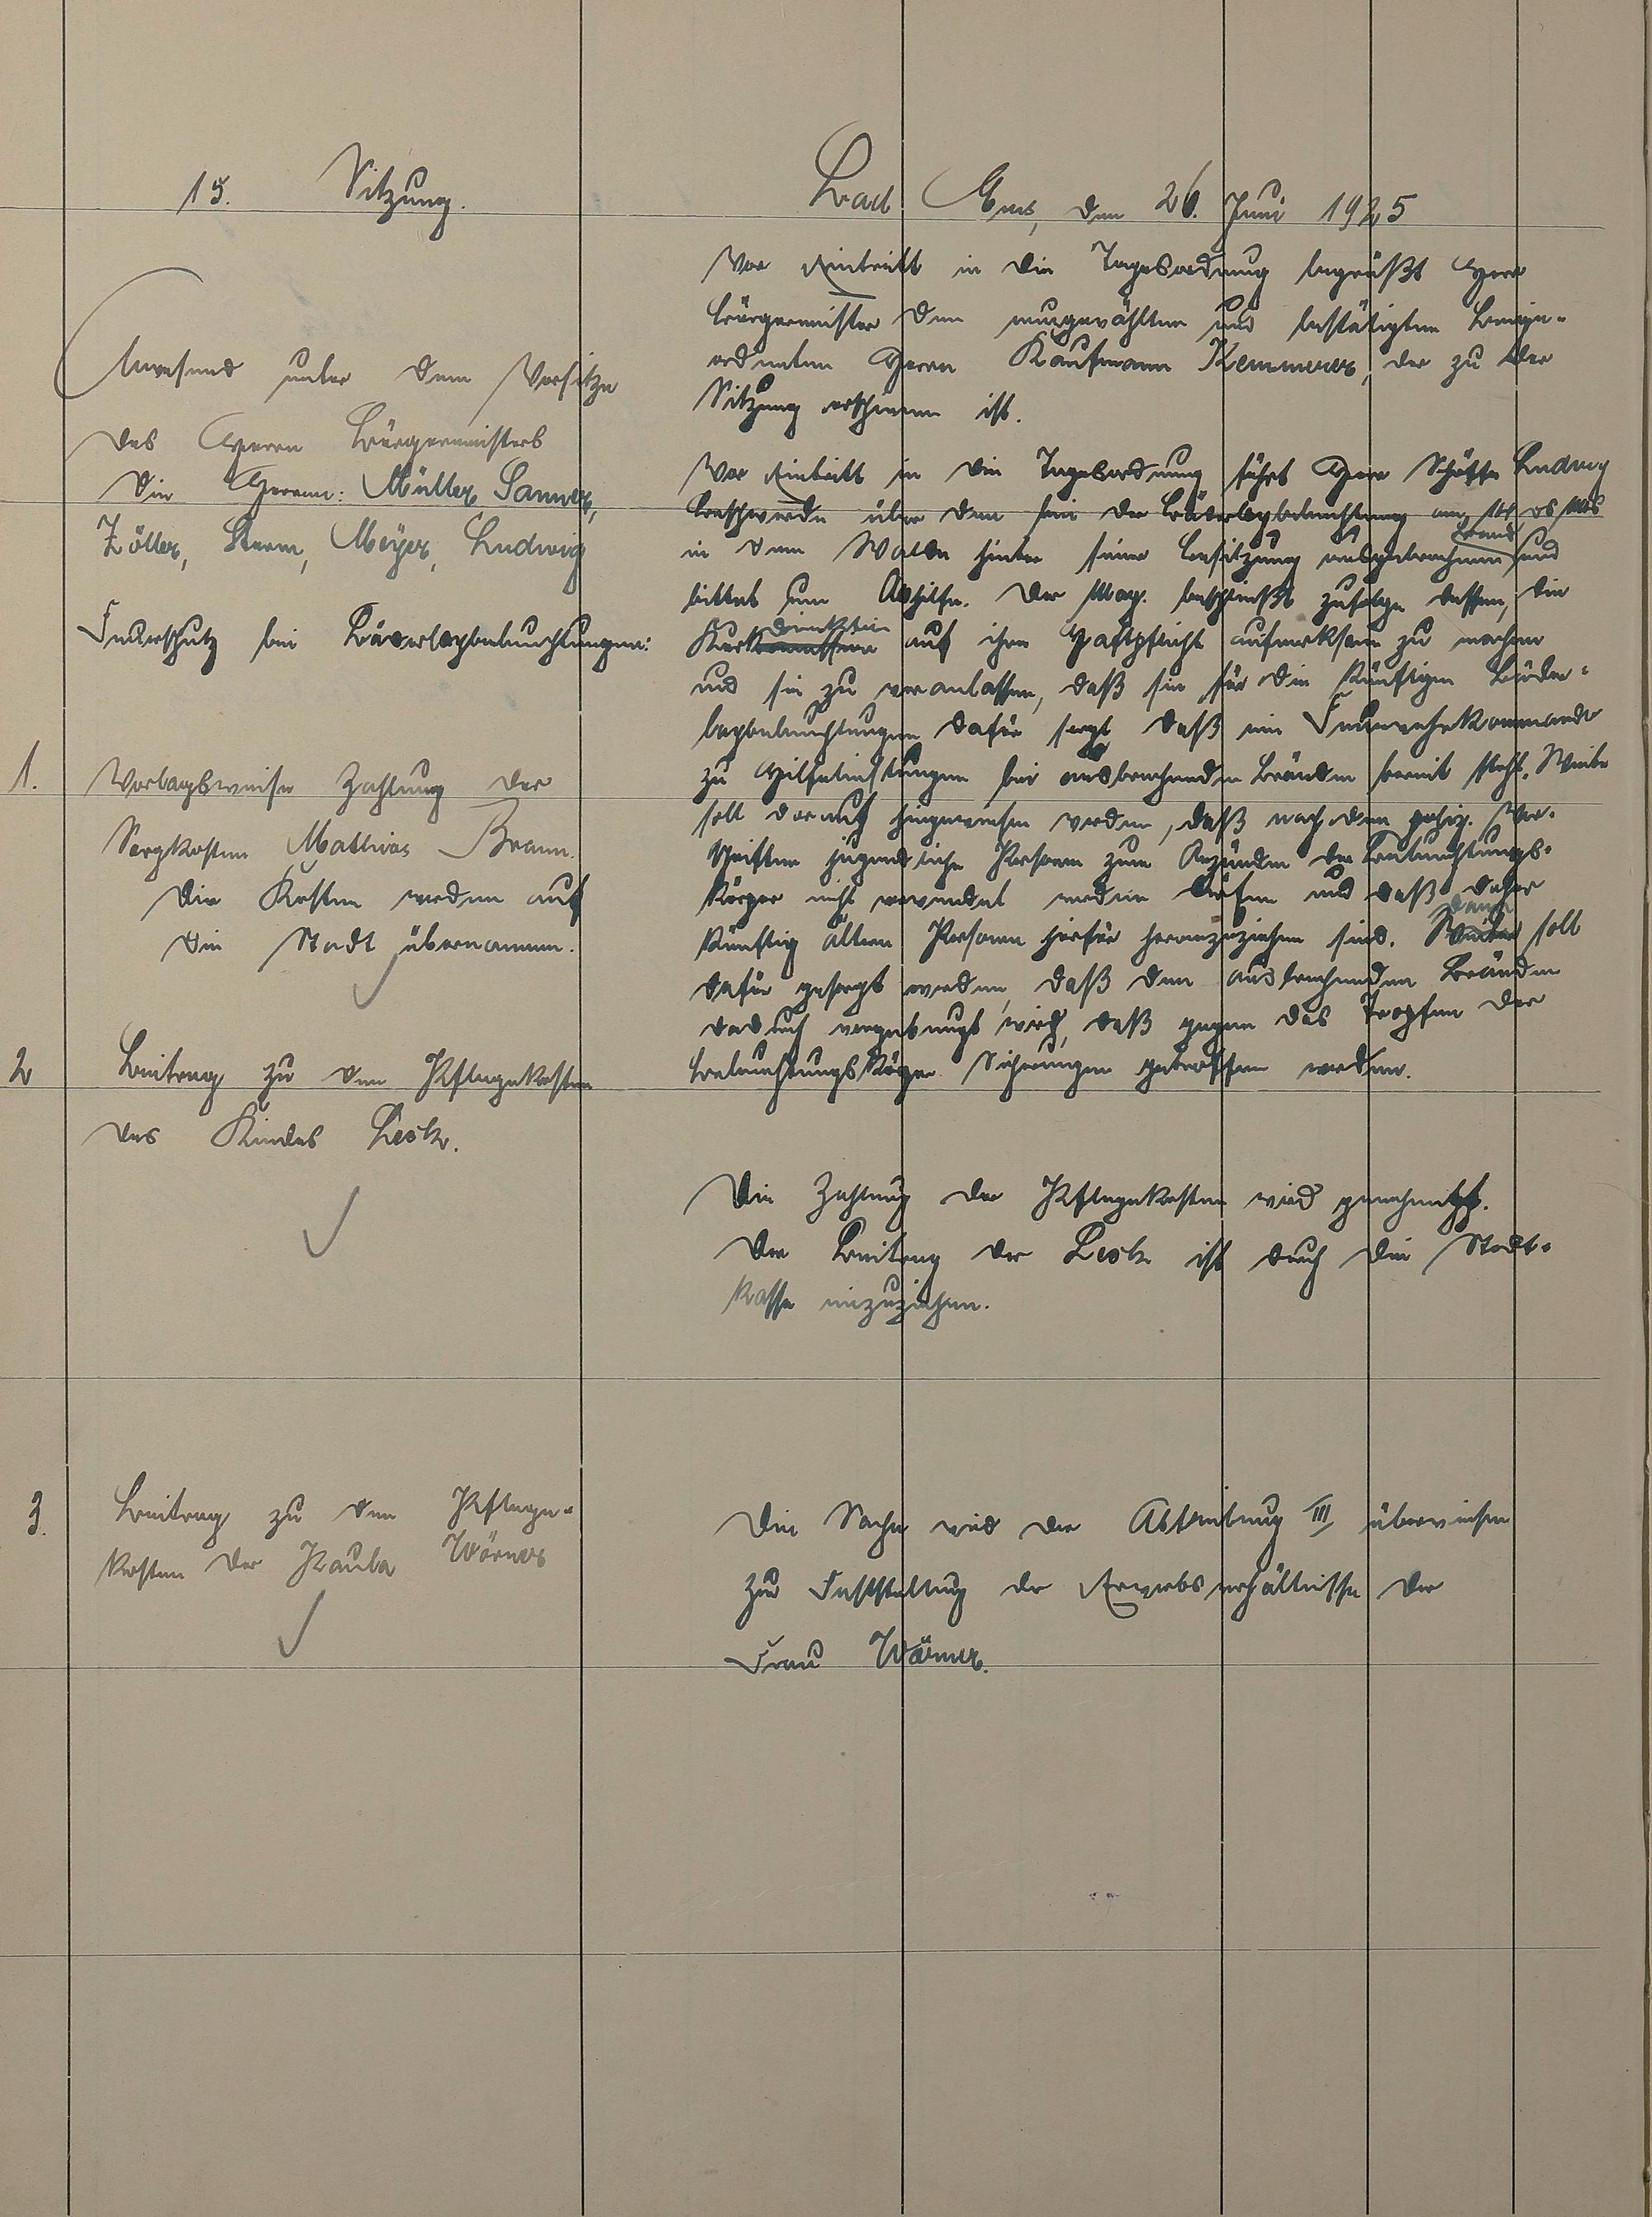 15. Sitzung.
Bad Ems, den 26. Juni 1925
Anwesend unter dem Vorsitze
des Herrn Bürgermeisters
die Herren: Müller, Sanner,
Zöller, Sturm, Meyer, Ludwig
Feuerschutz bei Bäderleybeleuchtungen:
Vor Eintritt in die Tagesordnung begrüßt Herr
Bürgermeister den neugewählten und bestätigten Beige-
ordneten Herrn Kaufmann Kemmerer, der zu der
Sitzung erschienen ist.
Vor Eintritt in die Tagesordnung führt Herr Schöffe Ludwig
Beschwerde über den bei der Bäderleybeleuchtung am
in dem Walde hinter seiner Besitzung ausgebrochenen Brand und
bittet um Abhilfe. Der Mag. beschließt zufolge dessen, die
Kurdirektion auf ihre Haftpflicht aufmerksam zu machen
und sie zu veranlassen, daß sie für die künftigen Bäder-
leybeleuchtungen dafür sorgt daß ein Feuerwehrkommando
zu Hilfeleistungen bei ausbrechenden Bränden bereit steht. Weiter
soll darauf hingewiesen werden, daß nach den poliz. Vor-
schriften jugendliche Personen zum Anzünden der Beleuchtungs-
körper nicht verwendet werden dürfen und daß daher
künftig ältere Personen hierfür heranzuziehen sind. Dann soll
dafür gesorgt werden, daß den ausbrechenden Bränden
dadurch vorgebeugt wird, daß gegen das Tropfen der
Beleuchtungskörper Sicherungen getroffen werden.
1. Vorlagsweise Zahlung der
Sargkosten Mathias Braun.
Die Kosten werden auf
die Stadt übernommen.
2 Beitrag zu den Pflegekosten
des Kindes Lesk.
Die Zahlung der Pflegekosten wird genehmigt.
Der Beitrag der Lesk ist durch die Stadt-
kasse einzuziehen.
3. Beitrag zu den Pflege-
kosten der Paula Wörner
Die Sache wird der Abteilung III überwiesen
zur Feststellung der Erwerbsverhältnisse der
Frau Wörner.